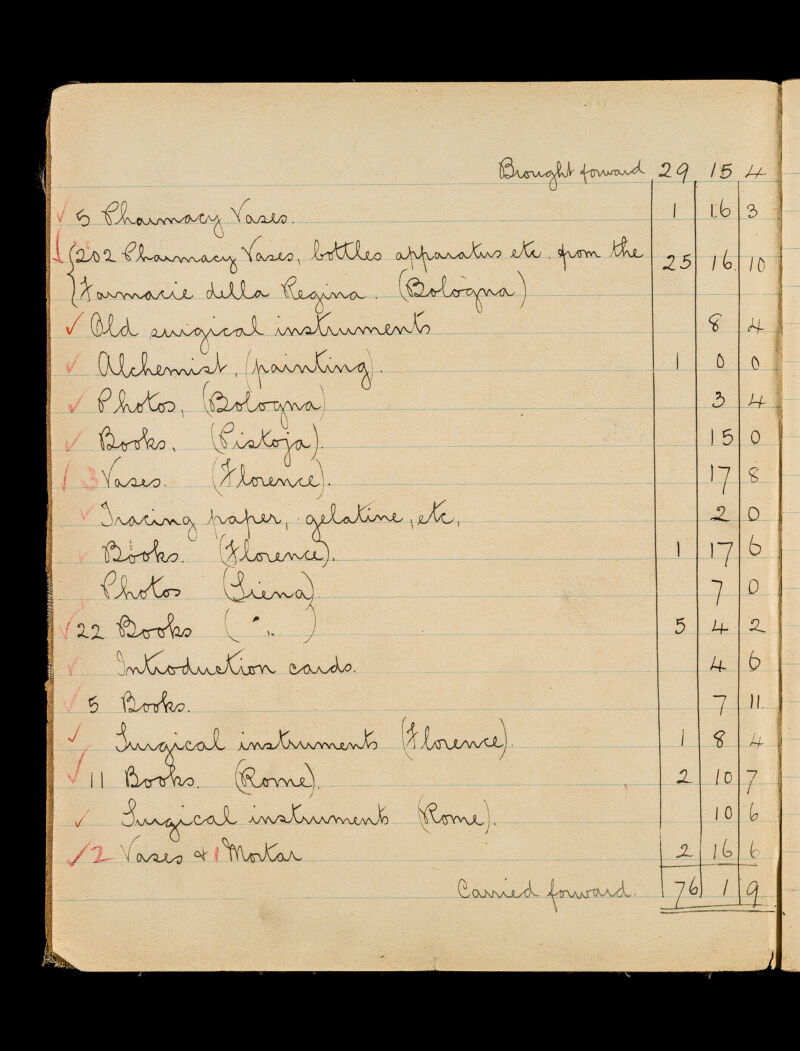 Brought forward 29 15 4
✓ 5 Pharmacy Vases. 1 16 3
✓ {202 Pharmacy Vases, bottles apparatus etc. from the 25 16 10
Farmacie della Regina. (Bologna)
✓ Old surgical instruments 8 4
✓ Alchemist, (painting). 1 0 0
✓ Photos, (Bologna) 3 4
✓ Books, (Pistoja). 15 0
✓ 3 Vases. (Florence). 17 8
✓ Tracing paper, gelatine, etc, 2 0
✓ Books. (Florence). 1 17 6
Photos (Siena) 7 0
✓ 22 Books ( " ,, ) 5 4 2
✓ Introduction cards. 4 6
✓ 5 Books. 7 11.
✓ Surgical instruments (Florence). 1 8 4
✓ 11 Books. (Rome). 2 10 7
✓ Surgical instruments (Rome). 10 6
✓ 2 Vases & 1 Mortar 2 16 6
Carried forward. 76 1 9